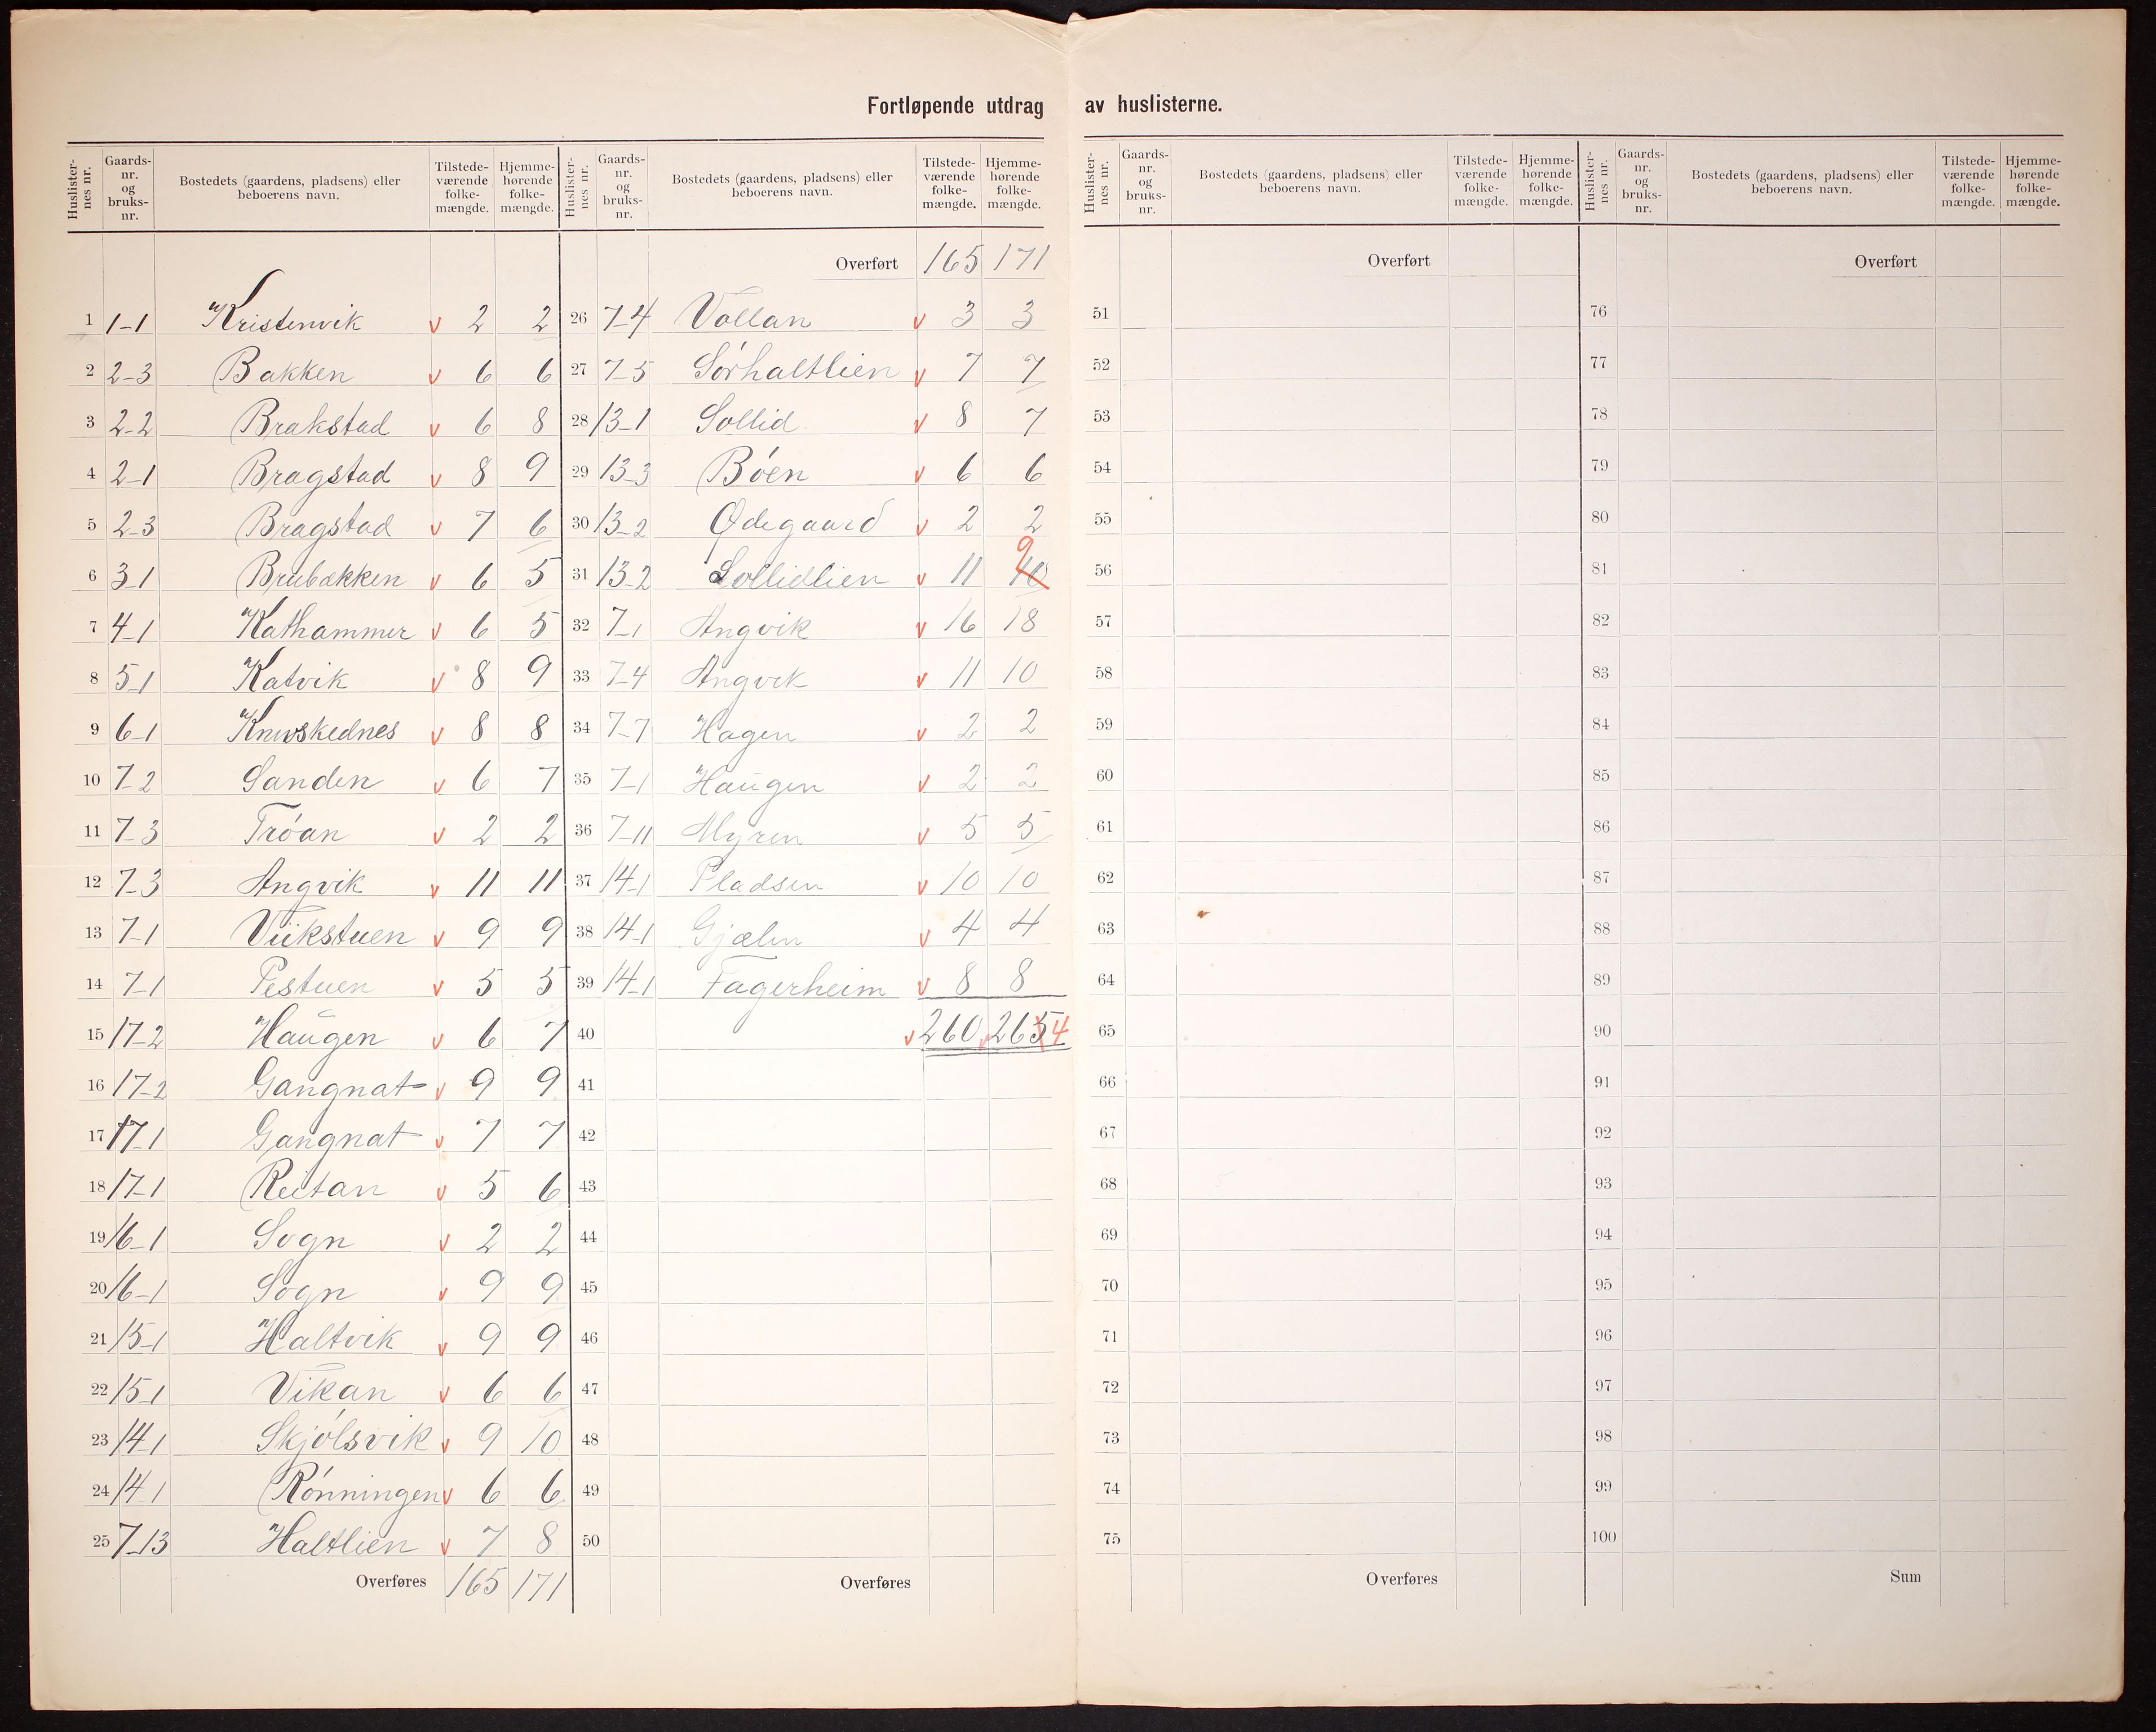 Fortløpende utdrag av huslisterne.
Huslister-nes nr. | Gaards-nr. og bruks-nr. | Bostedets (gaardens, pladsens) eller beboerens navn. | Tilstede-værende folke-mængde. | Hjemme-hørende folke-mængde.
1 1-1 Kristenvik v 2 2
2 2-3 Bakken v 6 6
3 2-2 Brakstad v 6 8
4 2-1 Bragstad v 8 9
5 2-3 Bragstad v 7 6
6 3-1 Brubakken v 6 5
7 4-1 Kathammer v 6 5
8 5-1 Katvik v 8 9
9 6-1 v 8 8
10 7-2 Sanden v 6 7
11 7-3 Tróan v 2 2
12 7-3 Angvik v 11 11
13 7-1 Vükstuen v 9 9
14 7-1 Pestuen v 5 5
15 17-2 Haugen v 6 7
16 17-2 Gangnat v 9 9
17 17-1 Gangnat v 7 7
18 17-1 Reitan v 5 6
19 16-1 Sogn v 2 2
20 16-1 Sogn v 9 9
21 15-1 Haltvik v 9 9
22 15-1 Vikan v 6 6
23 14-1 Skjólsvik v 9 10
24 14-1 Rónningen v 6 6
25 7-13 Haltlien v 7 8
Overføres 165 171
Huslister-nes nr. | Gaards-nr. og bruks-nr. | Bostedets (gaardens, pladsens) eller beboerens navn. | Tilstede-værende folke-mængde. | Hjemme-hørende folke-mængde.
Overført 165 171
26 7-4 Vollan v 3 3
27 7-5 Sórhaltlien v 7 7
28 13-1 Sollid v 8 7
29 13-3 Bóen v 6 6
30 13-2 Ødegaard v 2 2
31 13-2 Sollidlien v 11 10 9
32 7-1 Angvik v 16 18
33 7-4 Angvik v 11 10
34 7-7 Hagen v 2 2
35 7-1 Haugen v 2 2
36 7-11 Myren v 5 5
37 14-1 Pladsen v 10 10
38 14-1 Gjælen v 4 4
39 14-1 Fagerheim v 8 8
40 v 260 v 265 4
41
42
43
44
45
46
47
48
49
50
Overføres
Huslister-nes nr. | Gaards-nr. og bruks-nr. | Bostedets (gaardens, pladsens) eller beboerens navn. | Tilstede-værende folke-mængde. | Hjemme-hørende folke-mængde.
Overført
51
52
53
54
55
56
57
58
59
60
61
62
63
64
65
66
67
68
69
70
71
72
73
74
75
Overføres
Huslister-nes nr. | Gaards-nr. og bruks-nr. | Bostedets (gaardens, pladsens) eller beboerens navn. | Tilstede-værende folke-mængde. | Hjemme-hørende folke-mængde.
Overført
76
77
78
79
80
81
82
83
84
85
86
87
88
89
90
91
92
93
94
95
96
97
98
99
100
Sum